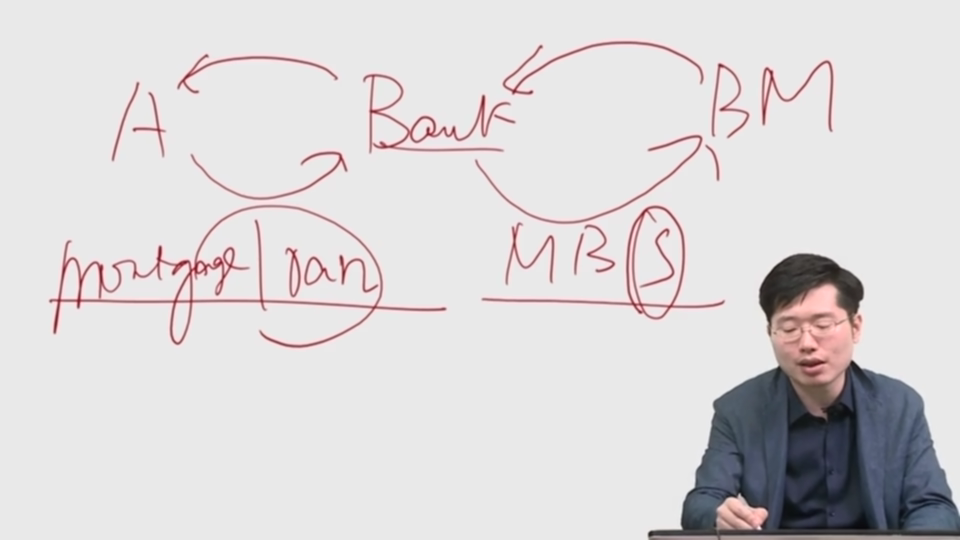 A Bank BM
mortgage loan MBS